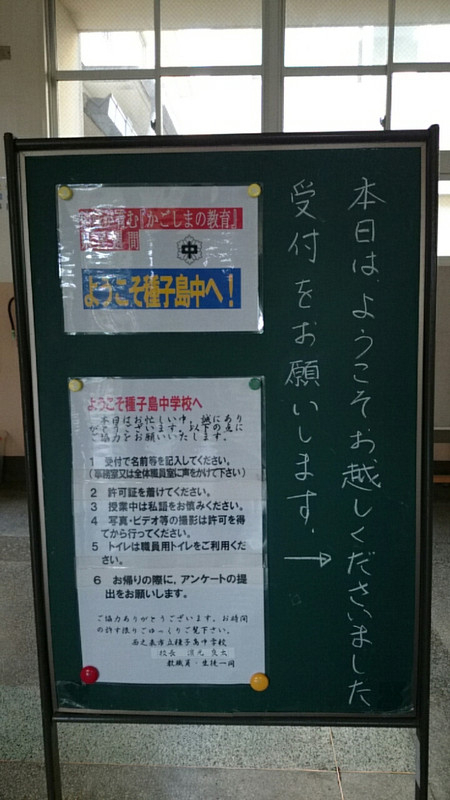 本日は、ようこそお越しくださいました
受付をお願いします。→
む『かごしまの教育』
中
ようこそ種子島中へ！
ようこそ種子島中学校へ
本日はお忙しい中、誠にあり
がとうございます。以下の点に
ご協力をお願いいたします。
1 受付で名前等を記入してください。
（事務室又は全体職員室に声をかけて下さい）
2 許可証を着けてください。
3 授業中は私語をお慎みください。
4 写真・ビデオ等の撮影は許可を得
てから行ってください。
5 トイレは職員用トイレをご利用くだ
さい。
6 お帰りの際に，アンケートの提
出をお願いします。
ご協力ありがとうございます。お時間
の許す限りごゆっくりご覧下さい。
西之表市立種子島中学校
校長
教職員・生徒一同